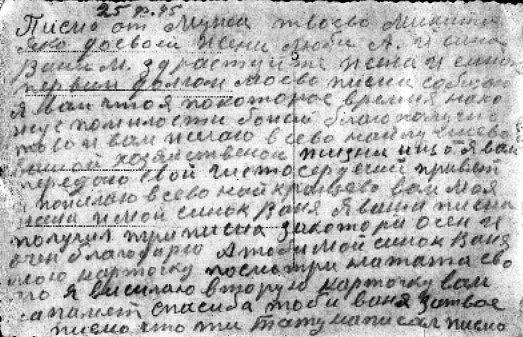 25 ф. 45
Писмо от Мужа твоево Микити
Яко доевоей жени Люби А. и сина
Вани М. здраствуйте жена и синок
первим долгом моево писма собщаю
я вам что я покоторое время нахо
жус помилости божой благополучно
тово и вам желаю всево найлучшево
вашой хозяственой жизни ищо я вам
передаю свой чистосердечий привет
и пожилаю всево найкращево вам моя
жена и мой синок Ваня Я ваши писма
получил три писма закотори очен и
очен благодарю А тоби мой синок Ваня
мою карточку посмотри на тата сво
го я висилаю вторую карточку вам
напамет спасиба тоби ваня за твое
писмо что ти тату написал писмо